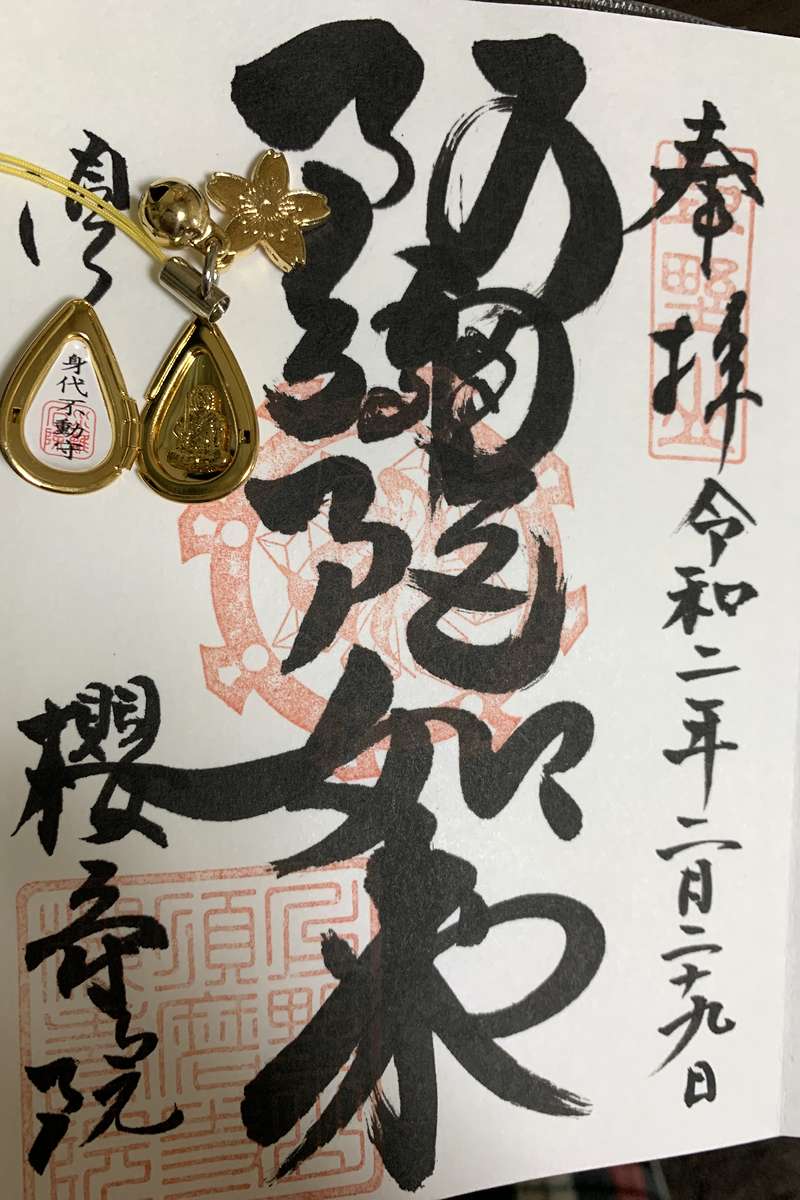 奉拝 令和二年二月二十九日
上野山
阿彌陀如来
櫻寿院
身代不動守